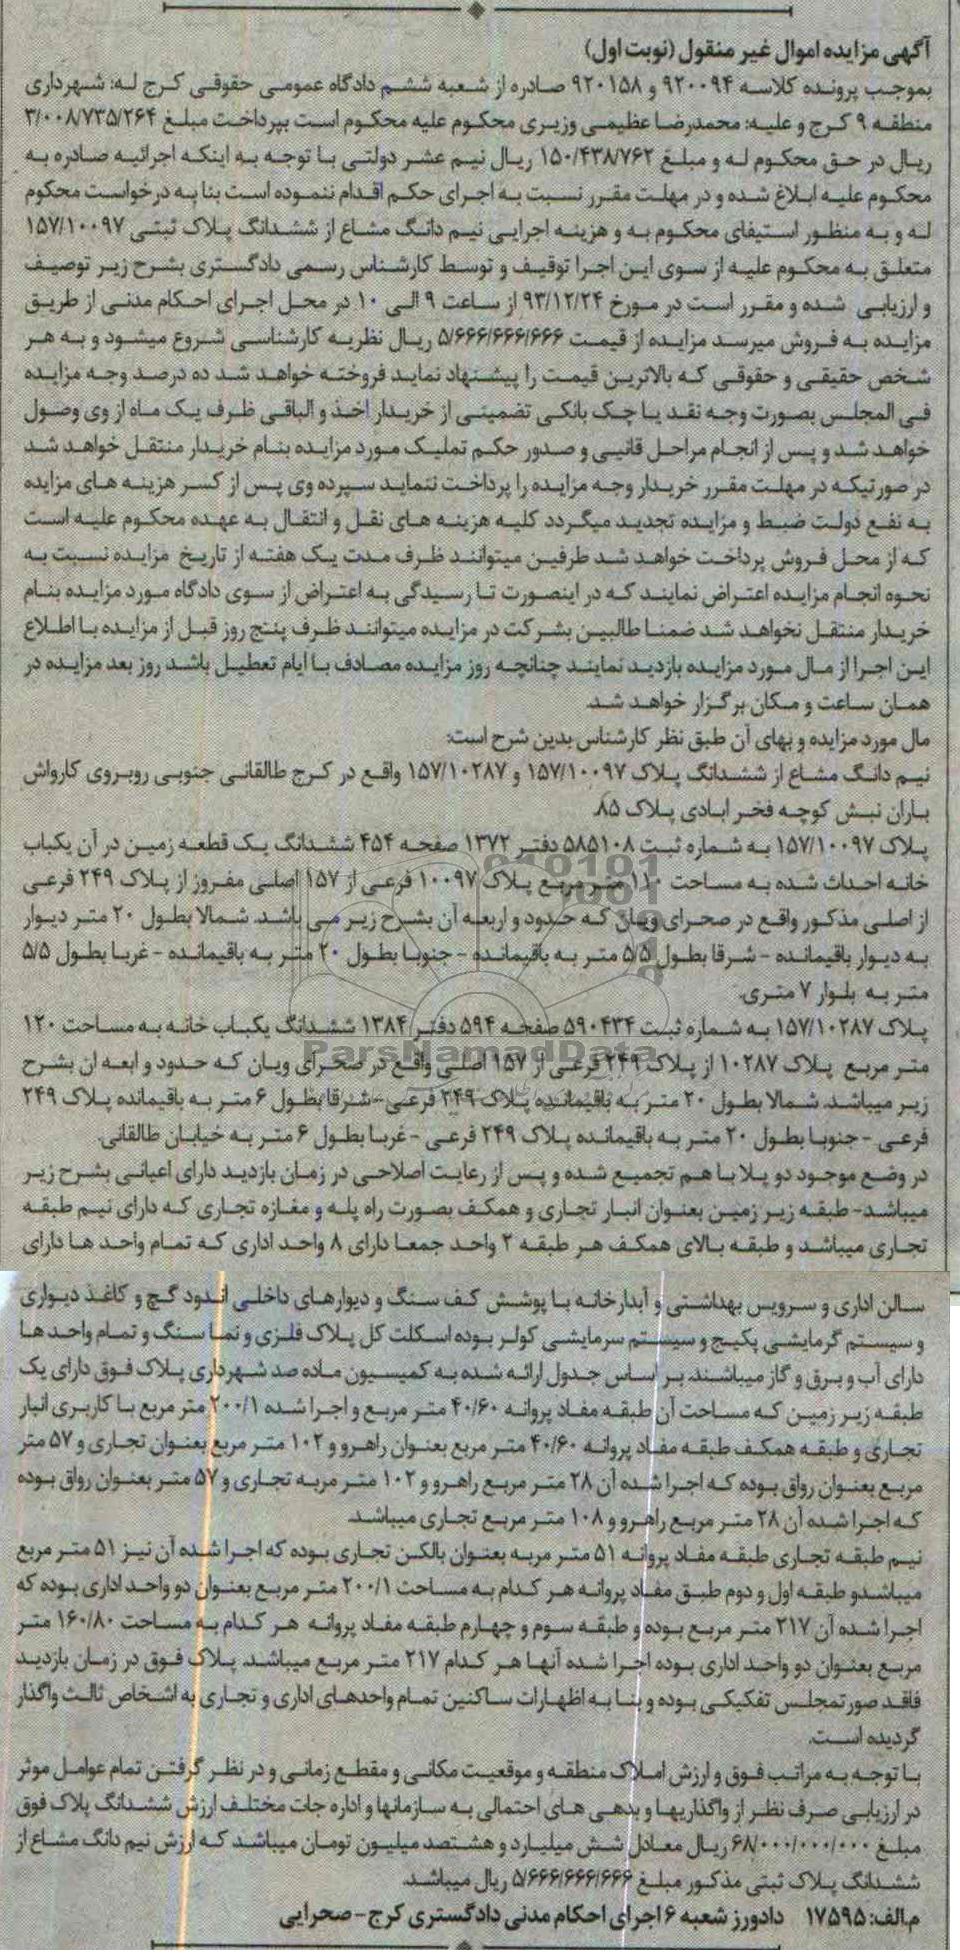 آگهی مزایده اموال غیر منقول (نوبت اول)
بموجب پرونده کلاسه ۹۲۰۰۹۴ و ۹۲۰۱۵۸ صادره از شعبه ششم دادگاه عمومی حقوقی کرج له: شهرداری
منطقه ۹ کرج و علیه: محمدرضا عظیمی وزیری محکوم علیه محکوم است بپرداخت مبلغ ۳/۰۰۸/۷۳۵/۲۶۴
ریال در حق محکوم له و مبلغ ۱۵۰/۴۳۸/۷۶۲ ریال نیم عشر دولتی با توجه به اینکه اجرائیه صادره به
محکوم علیه ابلاغ شده و در مهلت مقرر نسبت به اجرای حکم اقدام ننموده است بنا به درخواست محکوم
له و به منظور استیفای محکوم به و هزینه اجرایی نیم دانگ مشاع از ششدانگ پلاک ثبتی ۱۵۷/۱۰۰۹۷
متعلق به محکوم علیه از سوی این اجرا توقیف و توسط کارشناس رسمی دادگستری بشرح زیر توصیف
و ارزیابی شده و مقرر است در مورخ ۹۳/۱۲/۲۴ از ساعت ۹ الی ۱۰ در محل اجرای احکام مدنی از طریق
مزایده به فروش میرسد مزایده از قیمت ۵/۶۶۶/۶۶۶/۶۶۶ ریال نظریه کارشناسی شروع میشود و به هر
شخص حقیقی و حقوقی که بالاترین قیمت را پیشنهاد نماید فروخته خواهد شد ده درصد وجه مزایده
فی المجلس بصورت وجه نقد یا چک بانکی تضمینی از خریدار اخذ و الباقی ظرف یک ماه از وی وصول
خواهد شد و پس از انجام مراحل قانیی و صدور حکم تملیک مورد مزایده بنام خریدار منتقل خواهد شد
در صورتیکه در مهلت مقرر خریدار وجه مزایده را پرداخت ننماید سپرده وی پس از کسر هزینه های مزایده
به نفع دولت ضبط و مزایده تجدید میگردد کلیه هزینه های نقل و انتقال به عهده محکوم علیه است
که از محل فروش پرداخت خواهد شد طرفین میتوانند ظرف مدت یک هفته از تاریخ مزایده نسبت به
نحوه انجام مزایده اعتراض نمایند که در اینصورت تا رسیدگی به اعتراض از سوی دادگاه مورد مزایده بنام
خریدار منتقل نخواهد شد ضمنا طالبین بشرکت در مزایده میتوانند ظرف پنج روز قبل از مزایده با اطلاع
این اجرا از مال مورد مزایده بازدید نمایند چنانچه روز مزایده مصادف با ایام تعطیل باشد روز بعد مزایده در
همان ساعت و مکان برگزار خواهد شد.
مال مورد مزایده و بهای آن طبق نظر کارشناس بدین شرح است:
نیم دانگ مشاع از ششدانگ پلاک ۱۵۷/۱۰۰۹۷ و ۱۵۷/۱۰۲۸۷ واقع در کرج طالقانی جنوبی روبروی کارواش
باران نبش کوچه فخر ابادی پلاک ۸۵.
پلاک ۱۵۷/۱۰۰۹۷ به شماره ثبت ۵۸۵۱۰۸ دفتر ۱۳۷۲ صفحه ۴۵۴ ششدانگ یک قطعه زمین در آن یکباب
خانه احداث شده به مساحت ۱۱۰ متر مربع پلاک ۱۰۰۹۷ فرعی از ۱۵۷ اصلی مفروز از پلاک ۲۴۹ فرعی
از اصلی مذکور واقع در صحرای ویان که حدود و اربعه آن بشرح زیر می باشد. شمالا بطول ۲۰ متر دیوار
به دیوار باقیمانده - شرقا بطول ۵/۵ متر به باقیمانده - جنوبا بطول ۲۰ متر به باقیمانده - غربا بطول ۵/۵
متر به بلوار ۷ متری.
پلاک ۱۵۷/۱۰۲۸۷ به شماره ثبت ۵۹۰۴۳۴ صفحه ۵۹۴ دفتر ۱۳۸۴ ششدانگ یکباب خانه به مساحت ۱۲۰
متر مربع پلاک ۱۰۲۸۷ از پلاک ۲۴۹ فرعی از ۱۵۷ اصلی واقع در صحرای ویان که حدود و ابعه ان بشرح
زیر میباشد. شمالا بطول ۲۰ متر به باقیمانده پلاک ۲۴۹ فرعی - شرقا بطول ۶ متر به باقیمانده پلاک ۲۴۹
فرعی - جنوبا بطول ۲۰ متر به باقیمانده پلاک ۲۴۹ فرعی - غربا بطول ۶ متر به خیابان طالقانی.
در وضع موجود دو پلا با هم تجمیع شده و پس از رعایت اصلاحی در زمان بازدید دارای اعیانی بشرح زیر
میباشد- طبقه زیر زمین بعنوان انبار تجاری و همکف بصورت راه پله و مغازه تجاری که دارای نیم طبقه
تجاری میباشد و طبقه بالای همکف هر طبقه ۲ واحد جمعا دارای ۸ واحد اداری که تمام واحد ها دارای
سالن اداری و سرویس بهداشتی و آبدارخانه با پوشش کف سنگ و دیوارهای داخلی اندود گچ و کاغذ دیواری
و سیستم گرمایشی پکیج و سیستم سرمایشی کولر بوده اسکلت کل پلاک فلزی و نما سنگ و تمام واحد ها
دارای آب و برق و گاز میباشند. بر اساس جدول ارائه شده به کمیسیون ماده صد شهرداری پلاک فوق دارای یک
طبقه زیر زمین که مساحت آن طبقه مفاد پروانه ۴۰/۶۰ متر مربع و اجرا شده ۲۰۰/۱ متر مربع با کاربری انبار
تجاری و طبقه همکف طبقه مفاد پروانه ۴۰/۶۰ متر مربع بعنوان راهرو و ۱۰۲ متر مربع بعنوان تجاری و ۵۷ متر
مربع بعنوان رواق بوده که اجرا شده آن ۲۸ متر مربع راهرو و ۱۰۲ متر مربه تجاری و ۵۷ متر بعنوان رواق بوده
که اجرا شده آن ۲۸ متر مربع راهرو و ۱۰۸ متر مربع تجاری میباشد.
نیم طبقه تجاری طبقه مفاد پروانه ۵۱ متر مربه بعنوان بالکن تجاری بوده که اجرا شده آن نیز ۵۱ متر مربع
میباشدو طبقه اول و دوم طبق مفاد پروانه هر کدام به مساحت ۲۰۰/۱ متر مربع بعنوان دو واحد اداری بوده که
اجرا شده آن ۲۱۷ متر مربع بوده و طبقه سوم و چهارم طبقه مفاد پروانه هر کدام به مساحت ۱۶۰/۸۰ متر
مربع بعنوان دو واحد اداری بوده اجرا شده آنها هر کدام ۲۱۷ متر مربع میباشد. پلاک فوق در زمان بازدید
فاقد صورتمجلس تفکیکی بوده و بنا به اظهارات ساکنین تمام واحدهای اداری و تجاری به اشخاص ثالث واگذار
گردیده است.
با توجه به مراتب فوق و ارزش املاک منطقه و موقعیت مکانی و مقطع زمانی و در نظر گرفتن تمام عوامل موثر
در ارزیابی صرف نظر از واگذاریها و بدهی های احتمالی به سازمانها و اداره جات مختلف ارزش ششدانگ پلاک فوق
مبلغ ۶۸/۰۰۰/۰۰۰/۰۰۰ ریال معادل شش میلیارد و هشتصد میلیون تومان میباشد که ارزش نیم دانگ مشاع از
ششدانگ پلاک ثبتی مذکور مبلغ ۵/۶۶۶/۶۶۶/۶۶۶ ریال میباشد.
م.الف: ۱۷۵۹۵ دادورز شعبه ۶ اجرای احکام مدنی دادگستری کرج - صحرایی
ParsNamadData